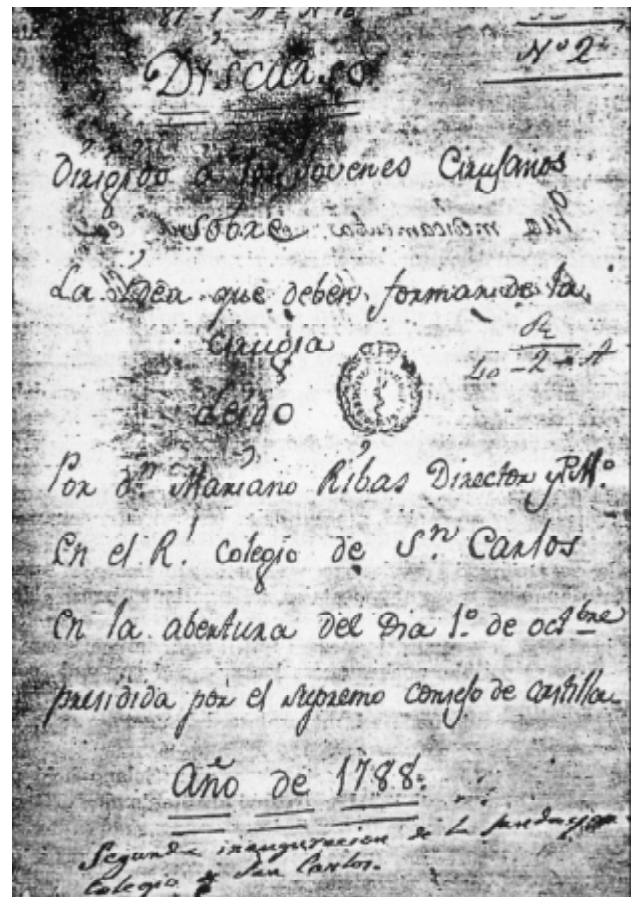 87-1-A-Nº
Nº 2
Discurso
Dirigido a los Jovenes Cirujanos
sobre
La Idea que deben formar de la
cirugia
40-2-A
Leido
Por dⁿ Mariano Ribas Director y
en el R.ˡ colegio de Sⁿ Carlos
en la abertura del Dia 1.º de octᵇʳᵉ
presidida por el supremo consejo de castilla
Año de 1788.
Segunda inauguracion de
Colegio de San Carlos.